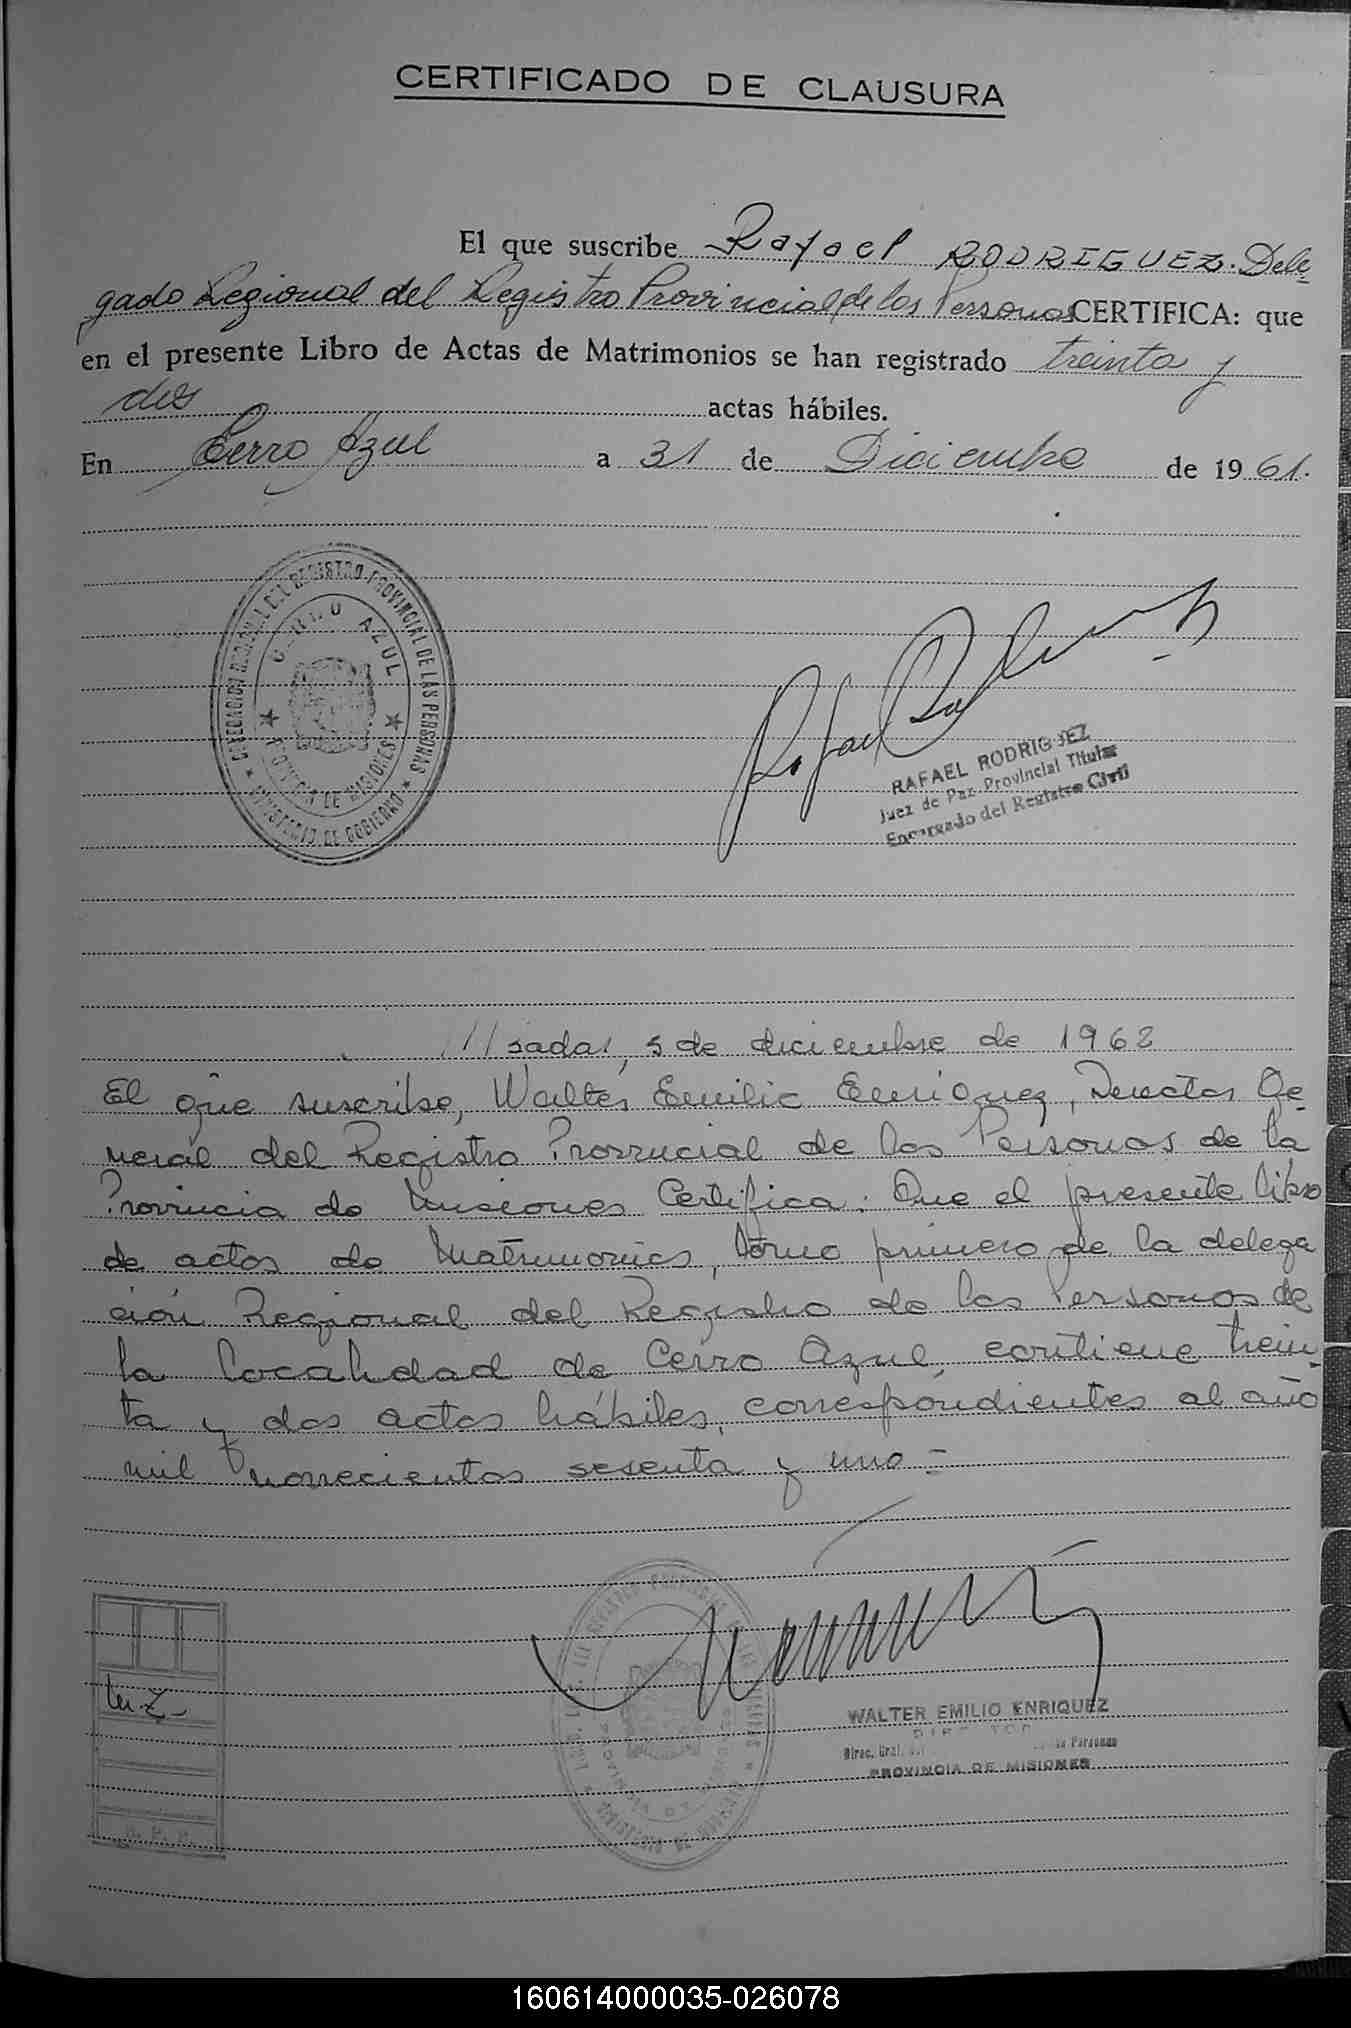 CERTIFICADO DE CLAUSURA
El que suscribe Rafael RODRIGUEZ. Dele
gado Regional del Registro Provincial de las Personas CERTIFICA: que
en el presente Libro de Actas de Matrimonios se han registrado treinta y
dos actas hábiles.
En Cerro Azul a 31 de Diciembre de 1961.
DELEGACION REGIONAL DEL REGISTRO PROVINCIAL DE LAS PERSONAS
CERRO AZUL
PROVINCIA DE MISIONES
MINISTERIO DE GOBIERNO
Rafael
RAFAEL RODRIGUEZ
Juez de Paz Provincial Titular
Encargado del Registro Civil
///sadas, 5 de diciembre de 1962
El que suscribe, Walter Emilio Enriquez, Director Ge
neral del Registro Provincial de las Personas de la
Provincia de Misiones Certifica: Que el presente libro
de actas de Matrimonios, tomo primero de la delega
ción Regional del Registro de las Personas de
la localidad de Cerro Azul, contiene trein
ta y dos actas hábiles, correspondientes al año
mil novecientos sesenta y uno =
WALTER EMILIO ENRIQUEZ
DIRECTOR
Direc. Gral. Personas
PROVINCIA DE MISIONES
160614000035-026078